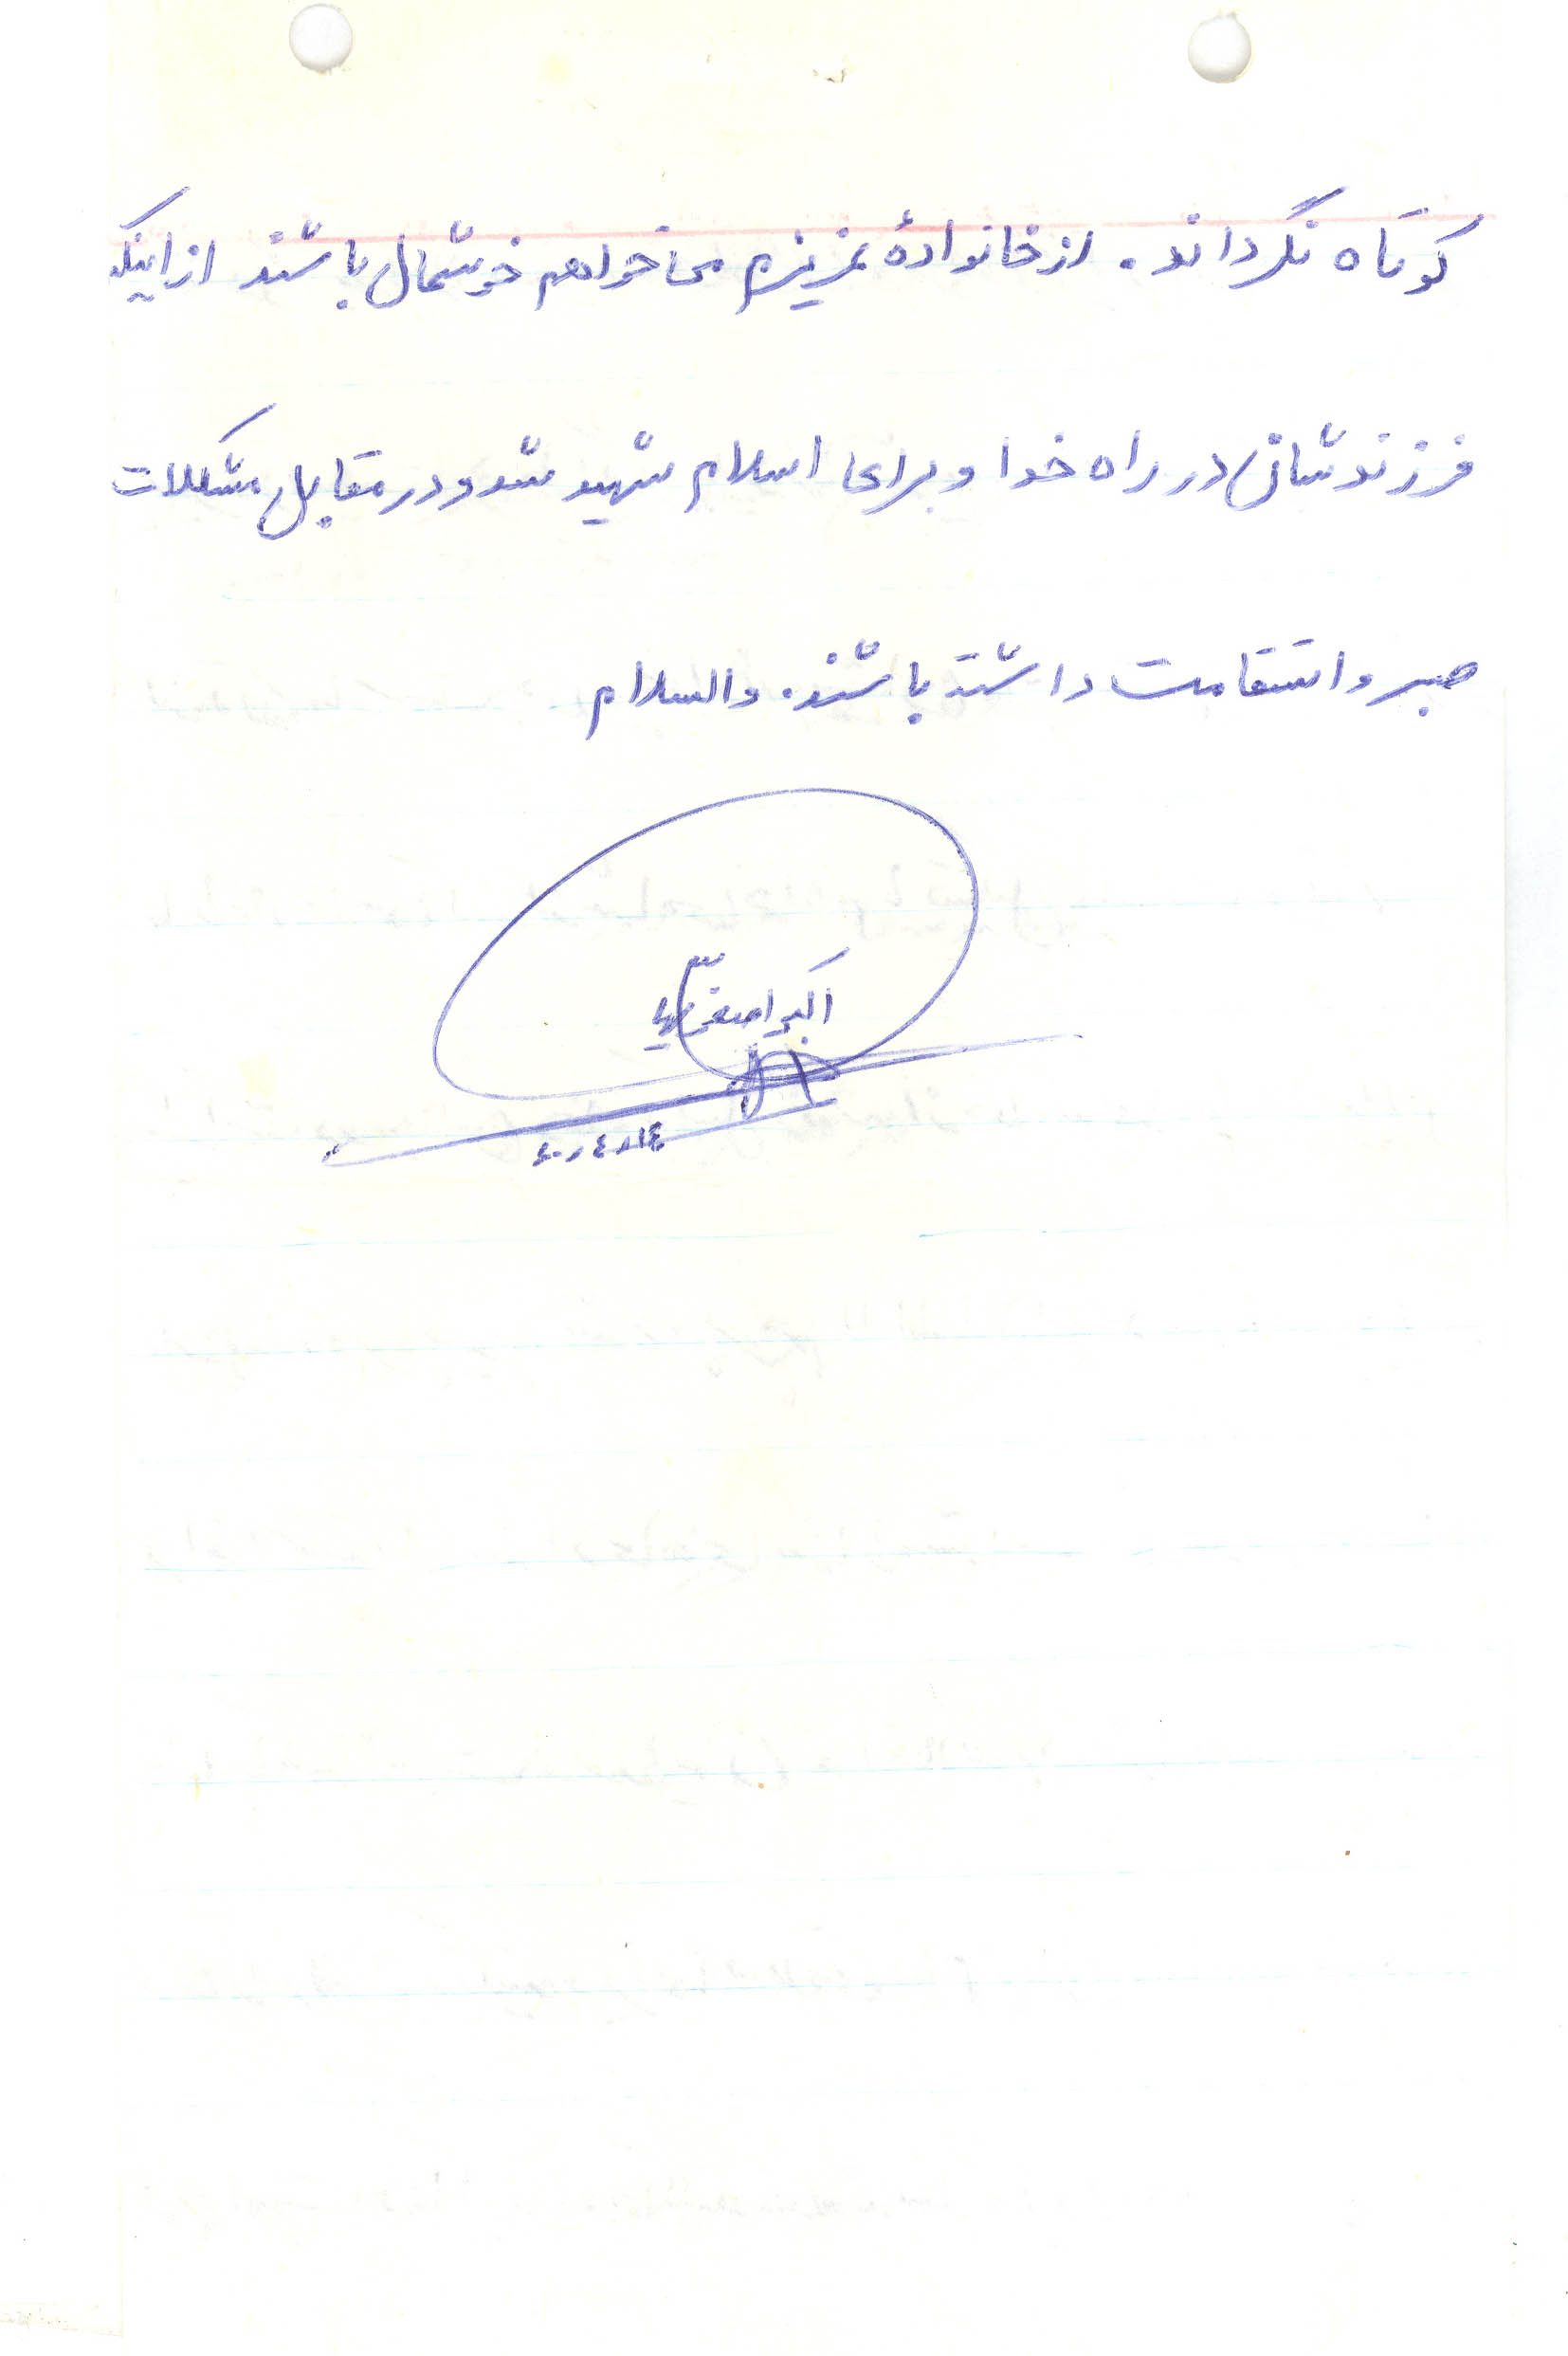 کوتاه نگرداند. از خانوادهٔ عزیزم می‌خواهم خوشحال باشند از اینکه
فرزندشان در راه خدا و برای اسلام شهید شد و در مقابل مشکلات
صبر و استقامت داشته باشند. والسلام
اکبر